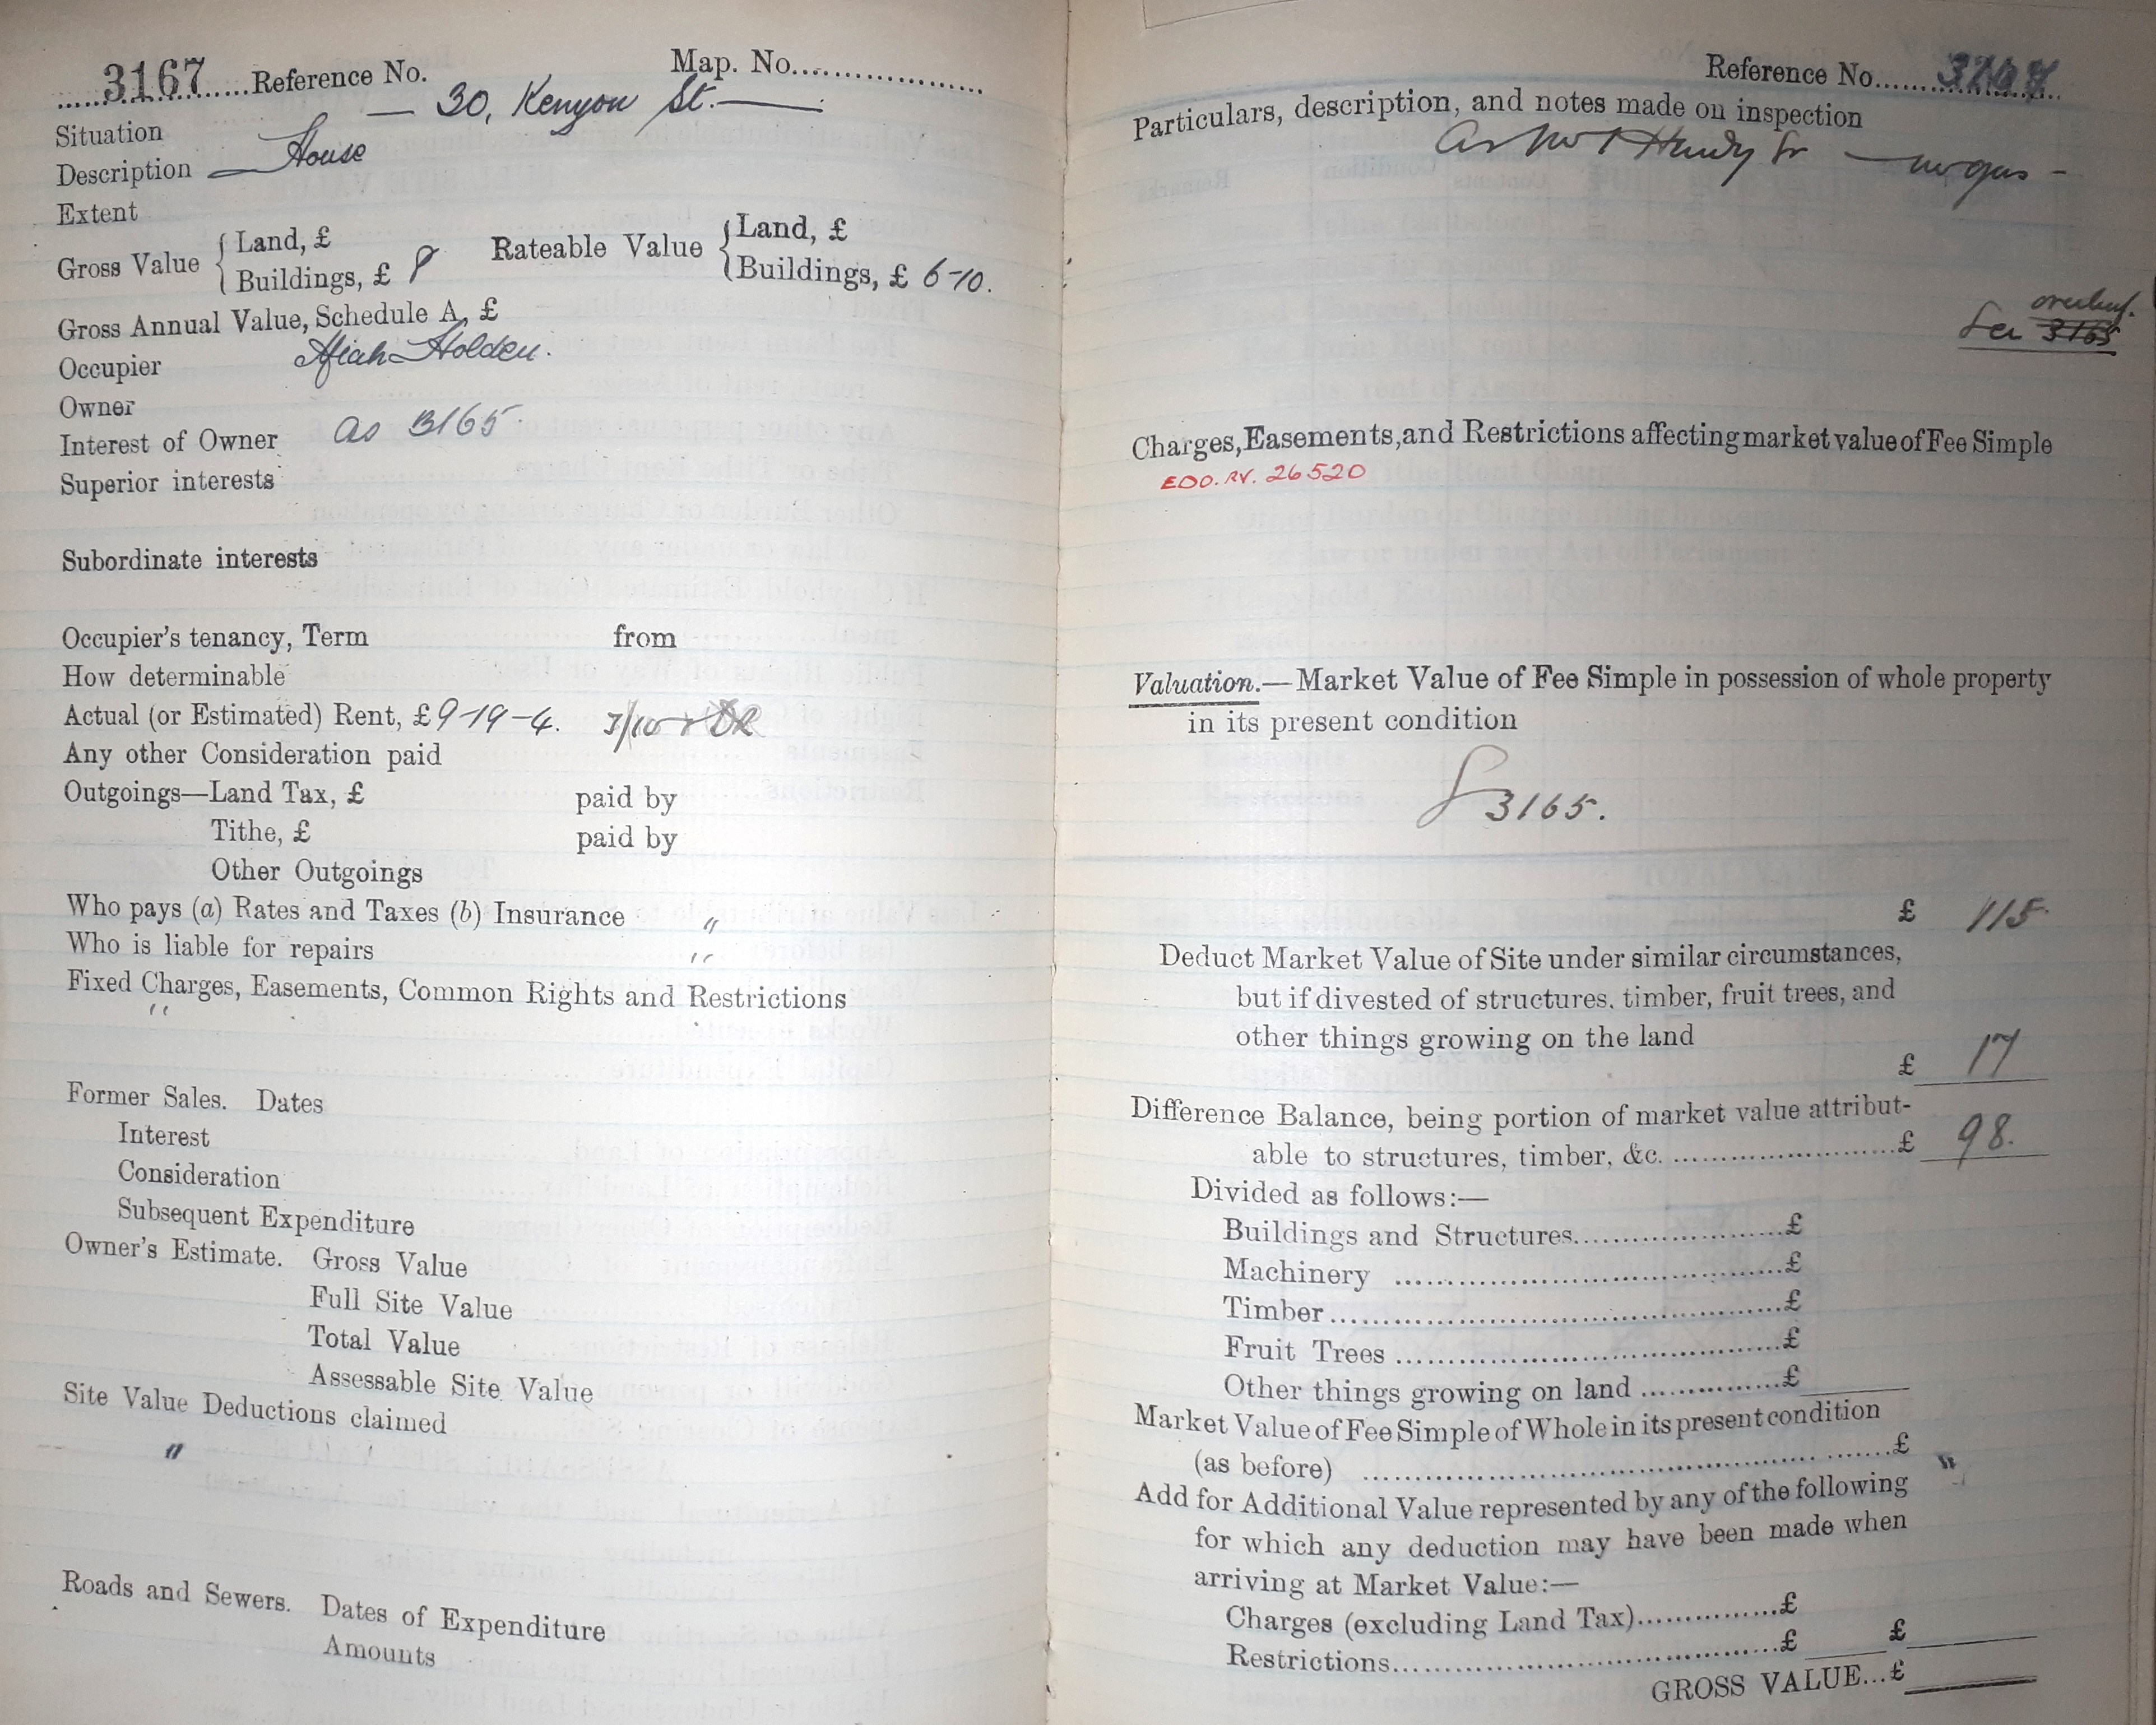 3167 Reference No. Map. No.
Situation — 30, Kenyon St. —
Description — House
Extent
Gross Value { Land, £ Rateable Value { Land, £
Buildings, £ 8 Buildings, £ 6-10.
Gross Annual Value, Schedule A, £
Occupier Holden.
Owner
Interest of Owner as 3165
Superior interests
Subordinate interests
Occupier's tenancy, Term from
How determinable
Actual (or Estimated) Rent, £ 9-19-4.
Any other Consideration paid
Outgoings—Land Tax, £ paid by
Tithe, £ paid by
Other Outgoings
Who pays (a) Rates and Taxes (b) Insurance "
Who is liable for repairs "
Fixed Charges, Easements, Common Rights and Restrictions
"
Former Sales. Dates
Interest
Consideration
Subsequent Expenditure
Owner's Estimate. Gross Value
Full Site Value
Total Value
Assessable Site Value
Site Value Deductions claimed
"
Roads and Sewers. Dates of Expenditure
Amounts
Reference No.
Particulars, description, and notes made on inspection
as No 1 Hardy St — no gas -
overleaf.
See 3165
Charges, Easements, and Restrictions affecting market value of Fee Simple
EDO. RV. 26520
Valuation.—Market Value of Fee Simple in possession of whole property
in its present condition
S 3165.
£ 115
Deduct Market Value of Site under similar circumstances,
but if divested of structures, timber, fruit trees, and
other things growing on the land
£ 17
Difference Balance, being portion of market value attribut-
able to structures, timber, &c. £ 98.
Divided as follows:—
Buildings and Structures £
Machinery £
Timber £
Fruit Trees £
Other things growing on land £
Market Value of Fee Simple of Whole in its present condition
(as before) £ "
Add for Additional Value represented by any of the following
for which any deduction may have been made when
arriving at Market Value:—
Charges (excluding Land Tax) £
Restrictions £ £
GROSS VALUE...£